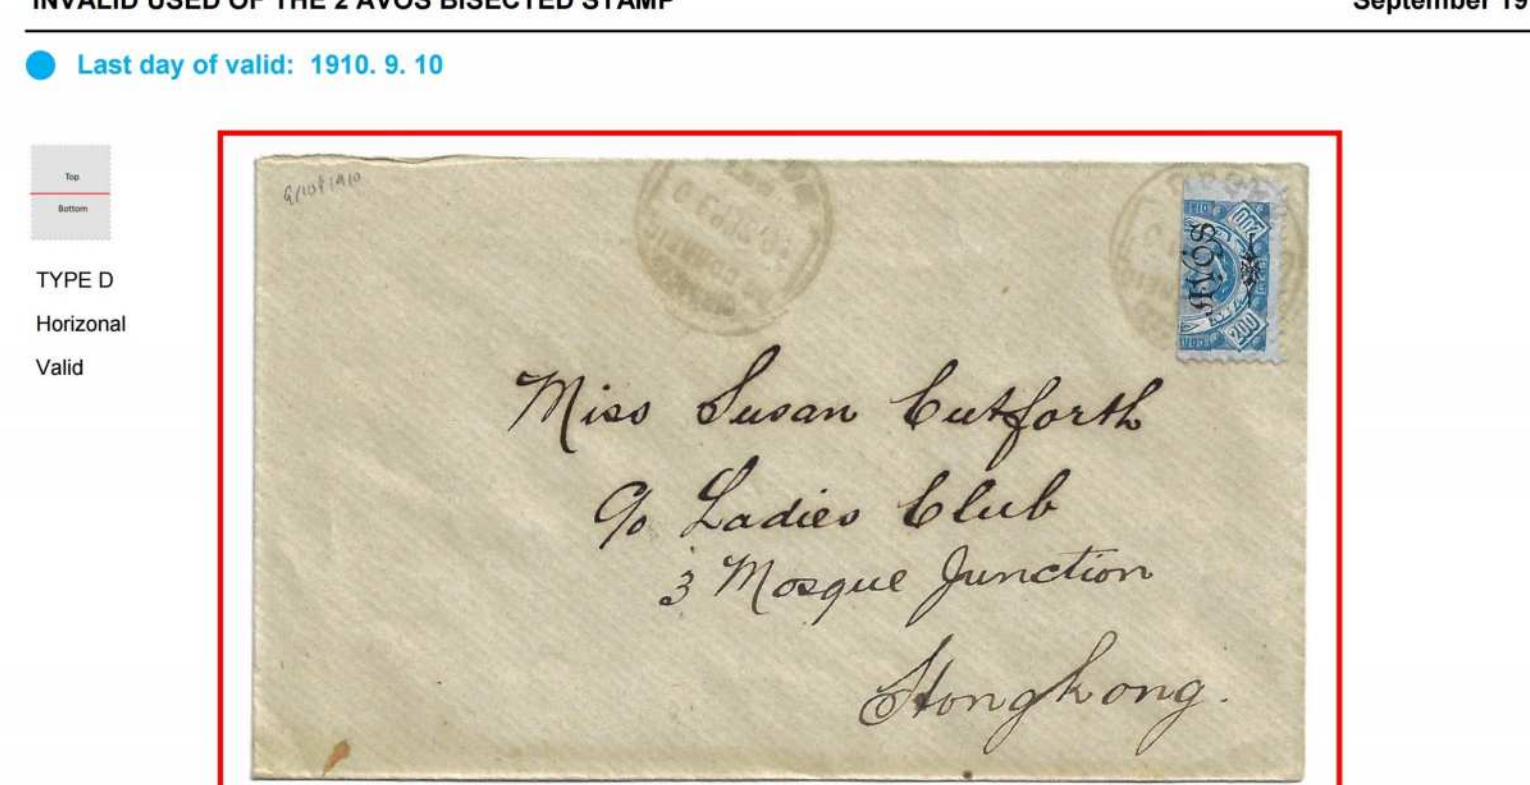 INVALID USED OF THE 2 AVOS BISECTED STAMP
September 19
Last day of valid: 1910. 9. 10
Top
Bottom
TYPE D
Horizonal
Valid
200
AVOS
200
Miss Susan Cutforth
c/o Ladies Club
3 Mosque Junction
Hongkong.